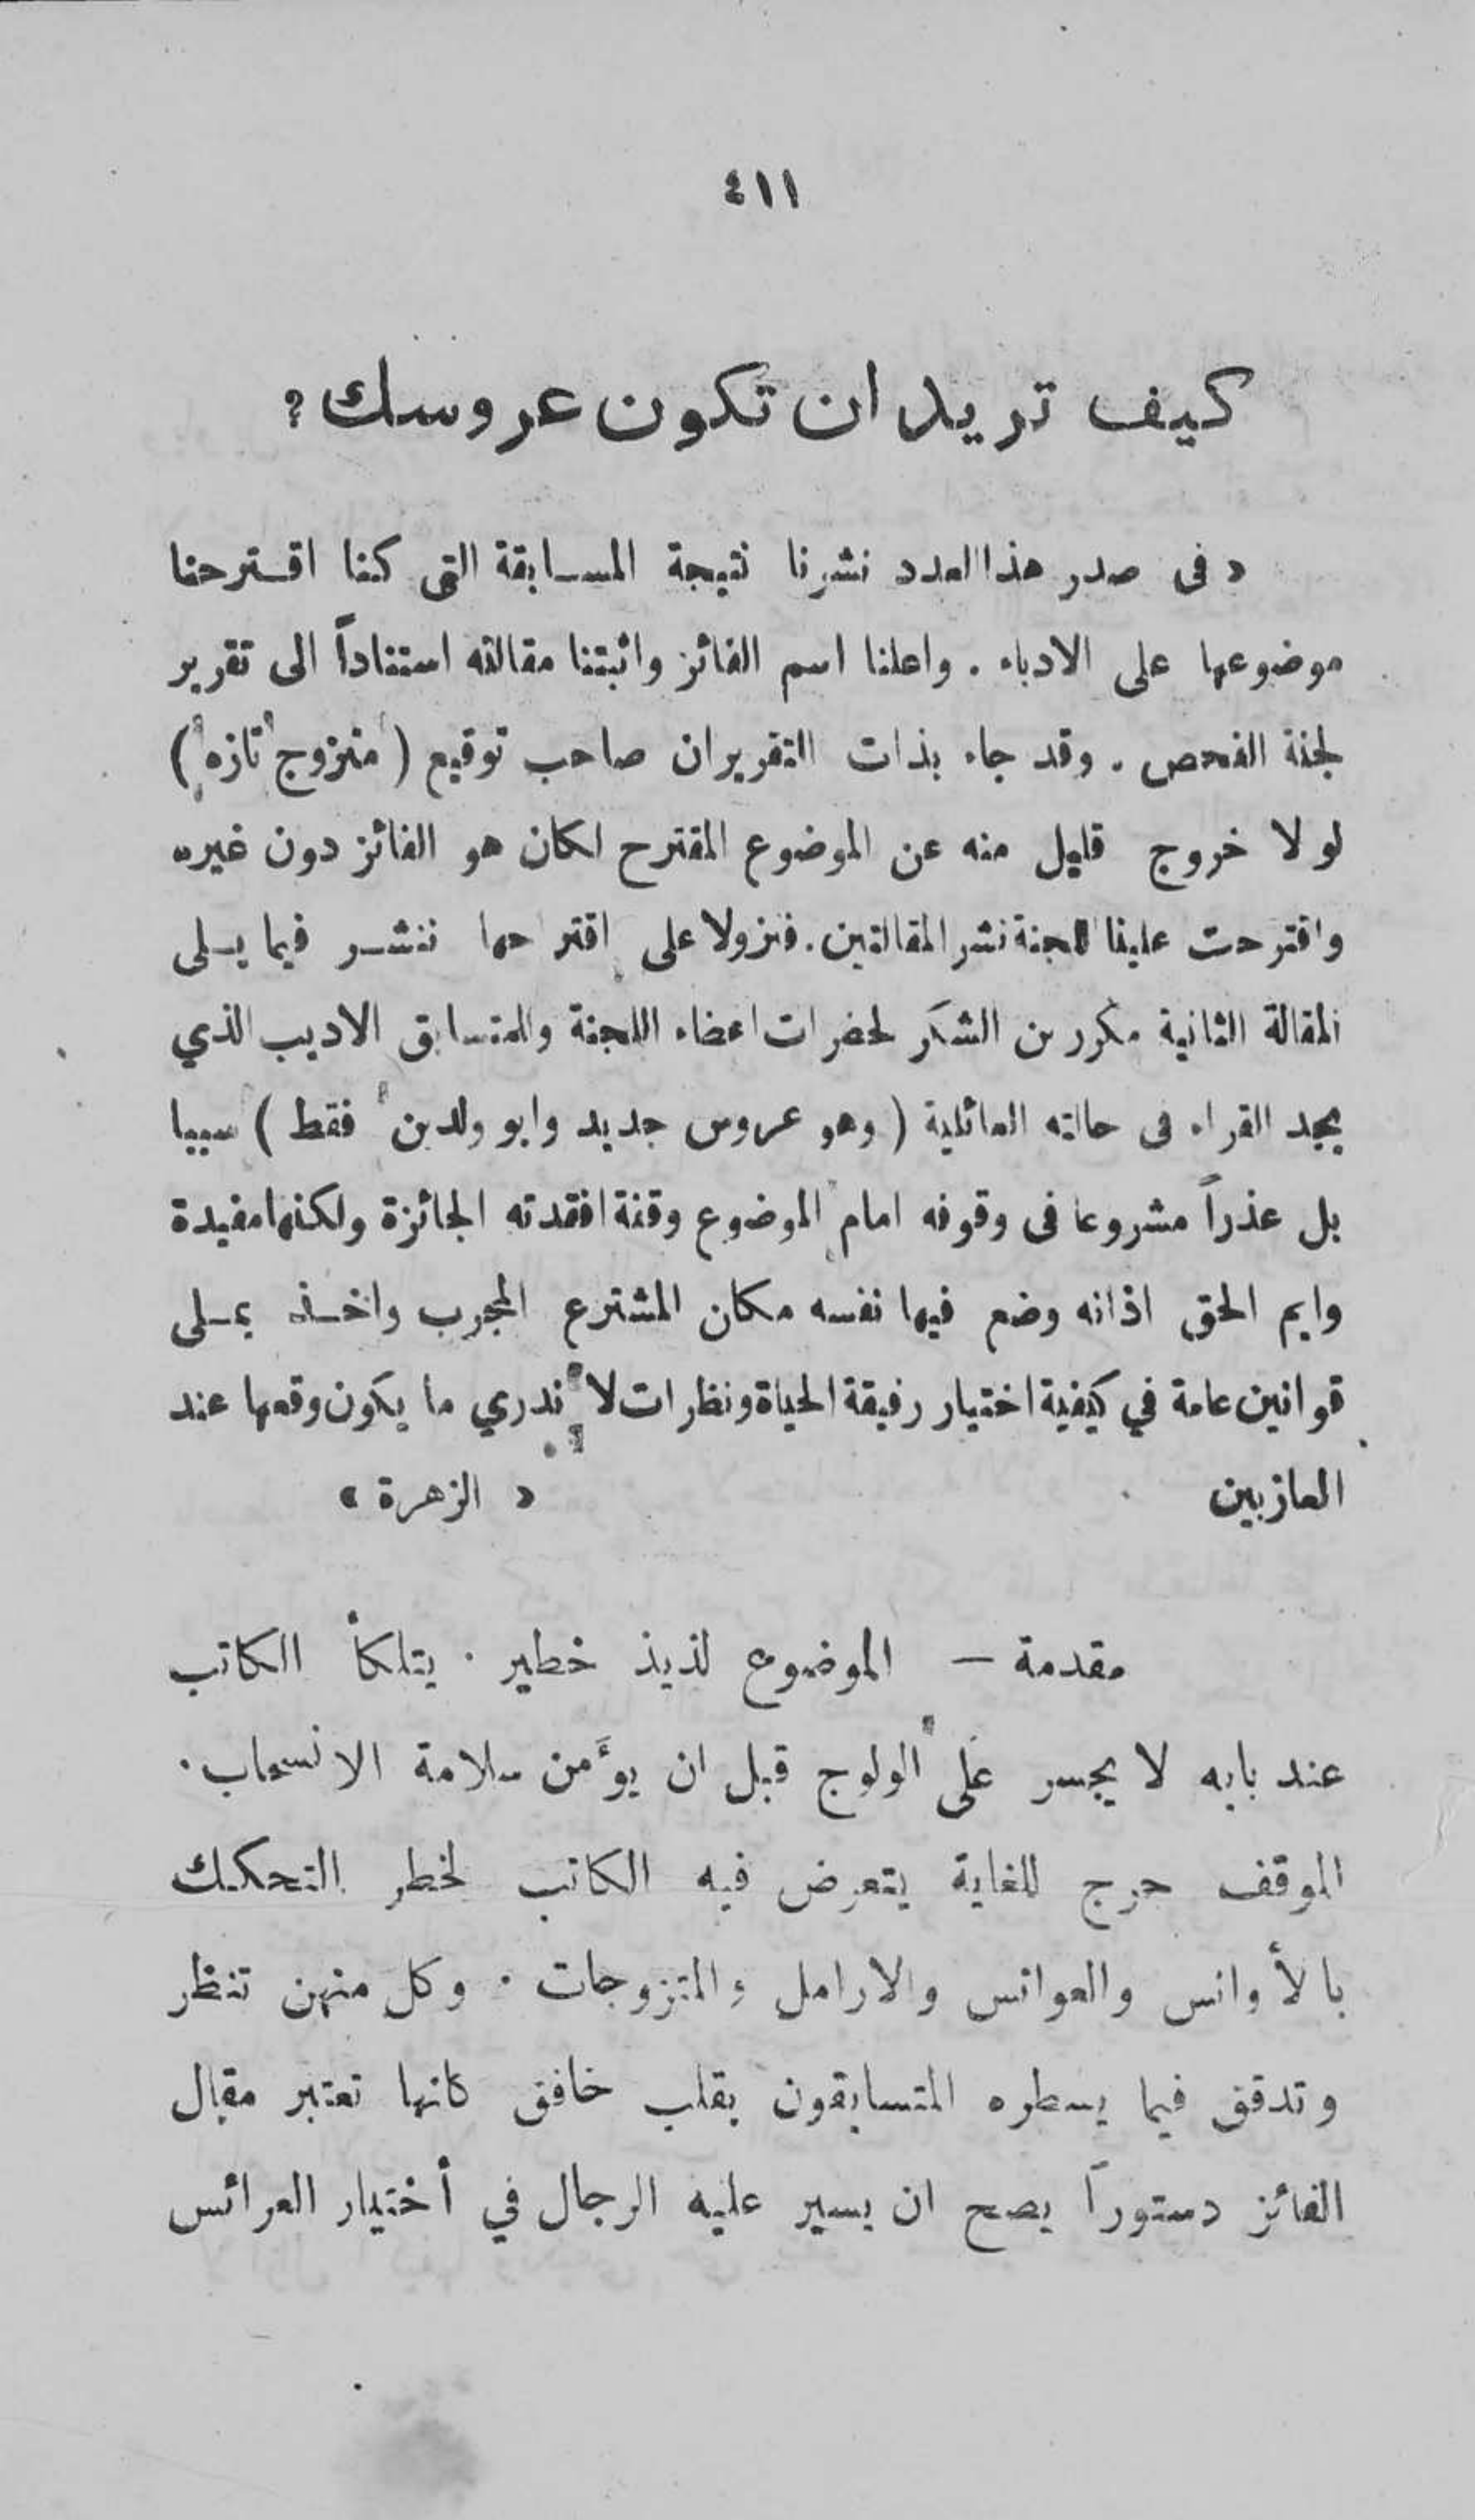 ٤١١
كيف تريد ان تكون عروسك؟
« في صدر هذا العدد نشرنا نتيجة المسابقة التي كنا اقترحنا
موضوعها على الادباء . واعلنا اسم الفائز واثبتنا مقالته استناداً الى تقرير
لجنة الفحص . وقد جاء بذات التقرير ان صاحب توقيع ( متزوج تازه )
لو لا خروج قليل منه عن الموضوع المقترح لكان هو الفائز دون غيره
واقترحت علينا اللجنة نشر المقالتين . فنزولا على اقتراحها ننشر فيما يلى
المقالة الثانية مكررين الشكر لحضرات اعضاء اللجنة والمتسابق الاديب الذي
يجد القراء في حالته العائلية ( وهو عروس جديد وابو ولدين فقط ) سببا
بل عذراً مشروعا في وقوفه امام الموضوع وقفة افقدته الجائزة ولكنها مفيدة
وايم الحق اذ انه وضع فيها نفسه مكان المشترع المجرب واخذ يملى
قوانين عامة في كيفية اختيار رفيقة الحياة ونظرات لا ندري ما يكون وقعها عند
العازبين « الزهرة »
مقدمة — الموضوع لذيذ خطير . يتلكأ الكاتب
عند بابه لا يجسر على الولوج قبل ان يؤَمن سلامة الانسحاب .
الموقف حرج للغاية يتعرض فيه الكاتب لخطر التحكك
بالأوانس والعوانس والارامل والمتزوجات . وكل منهن تنظر
وتدقق فيما يسطره المتسابقون بقلب خافق كانها تعتبر مقال
الفائز دستوراً يصح ان يسير عليه الرجال في أختيار العرائس